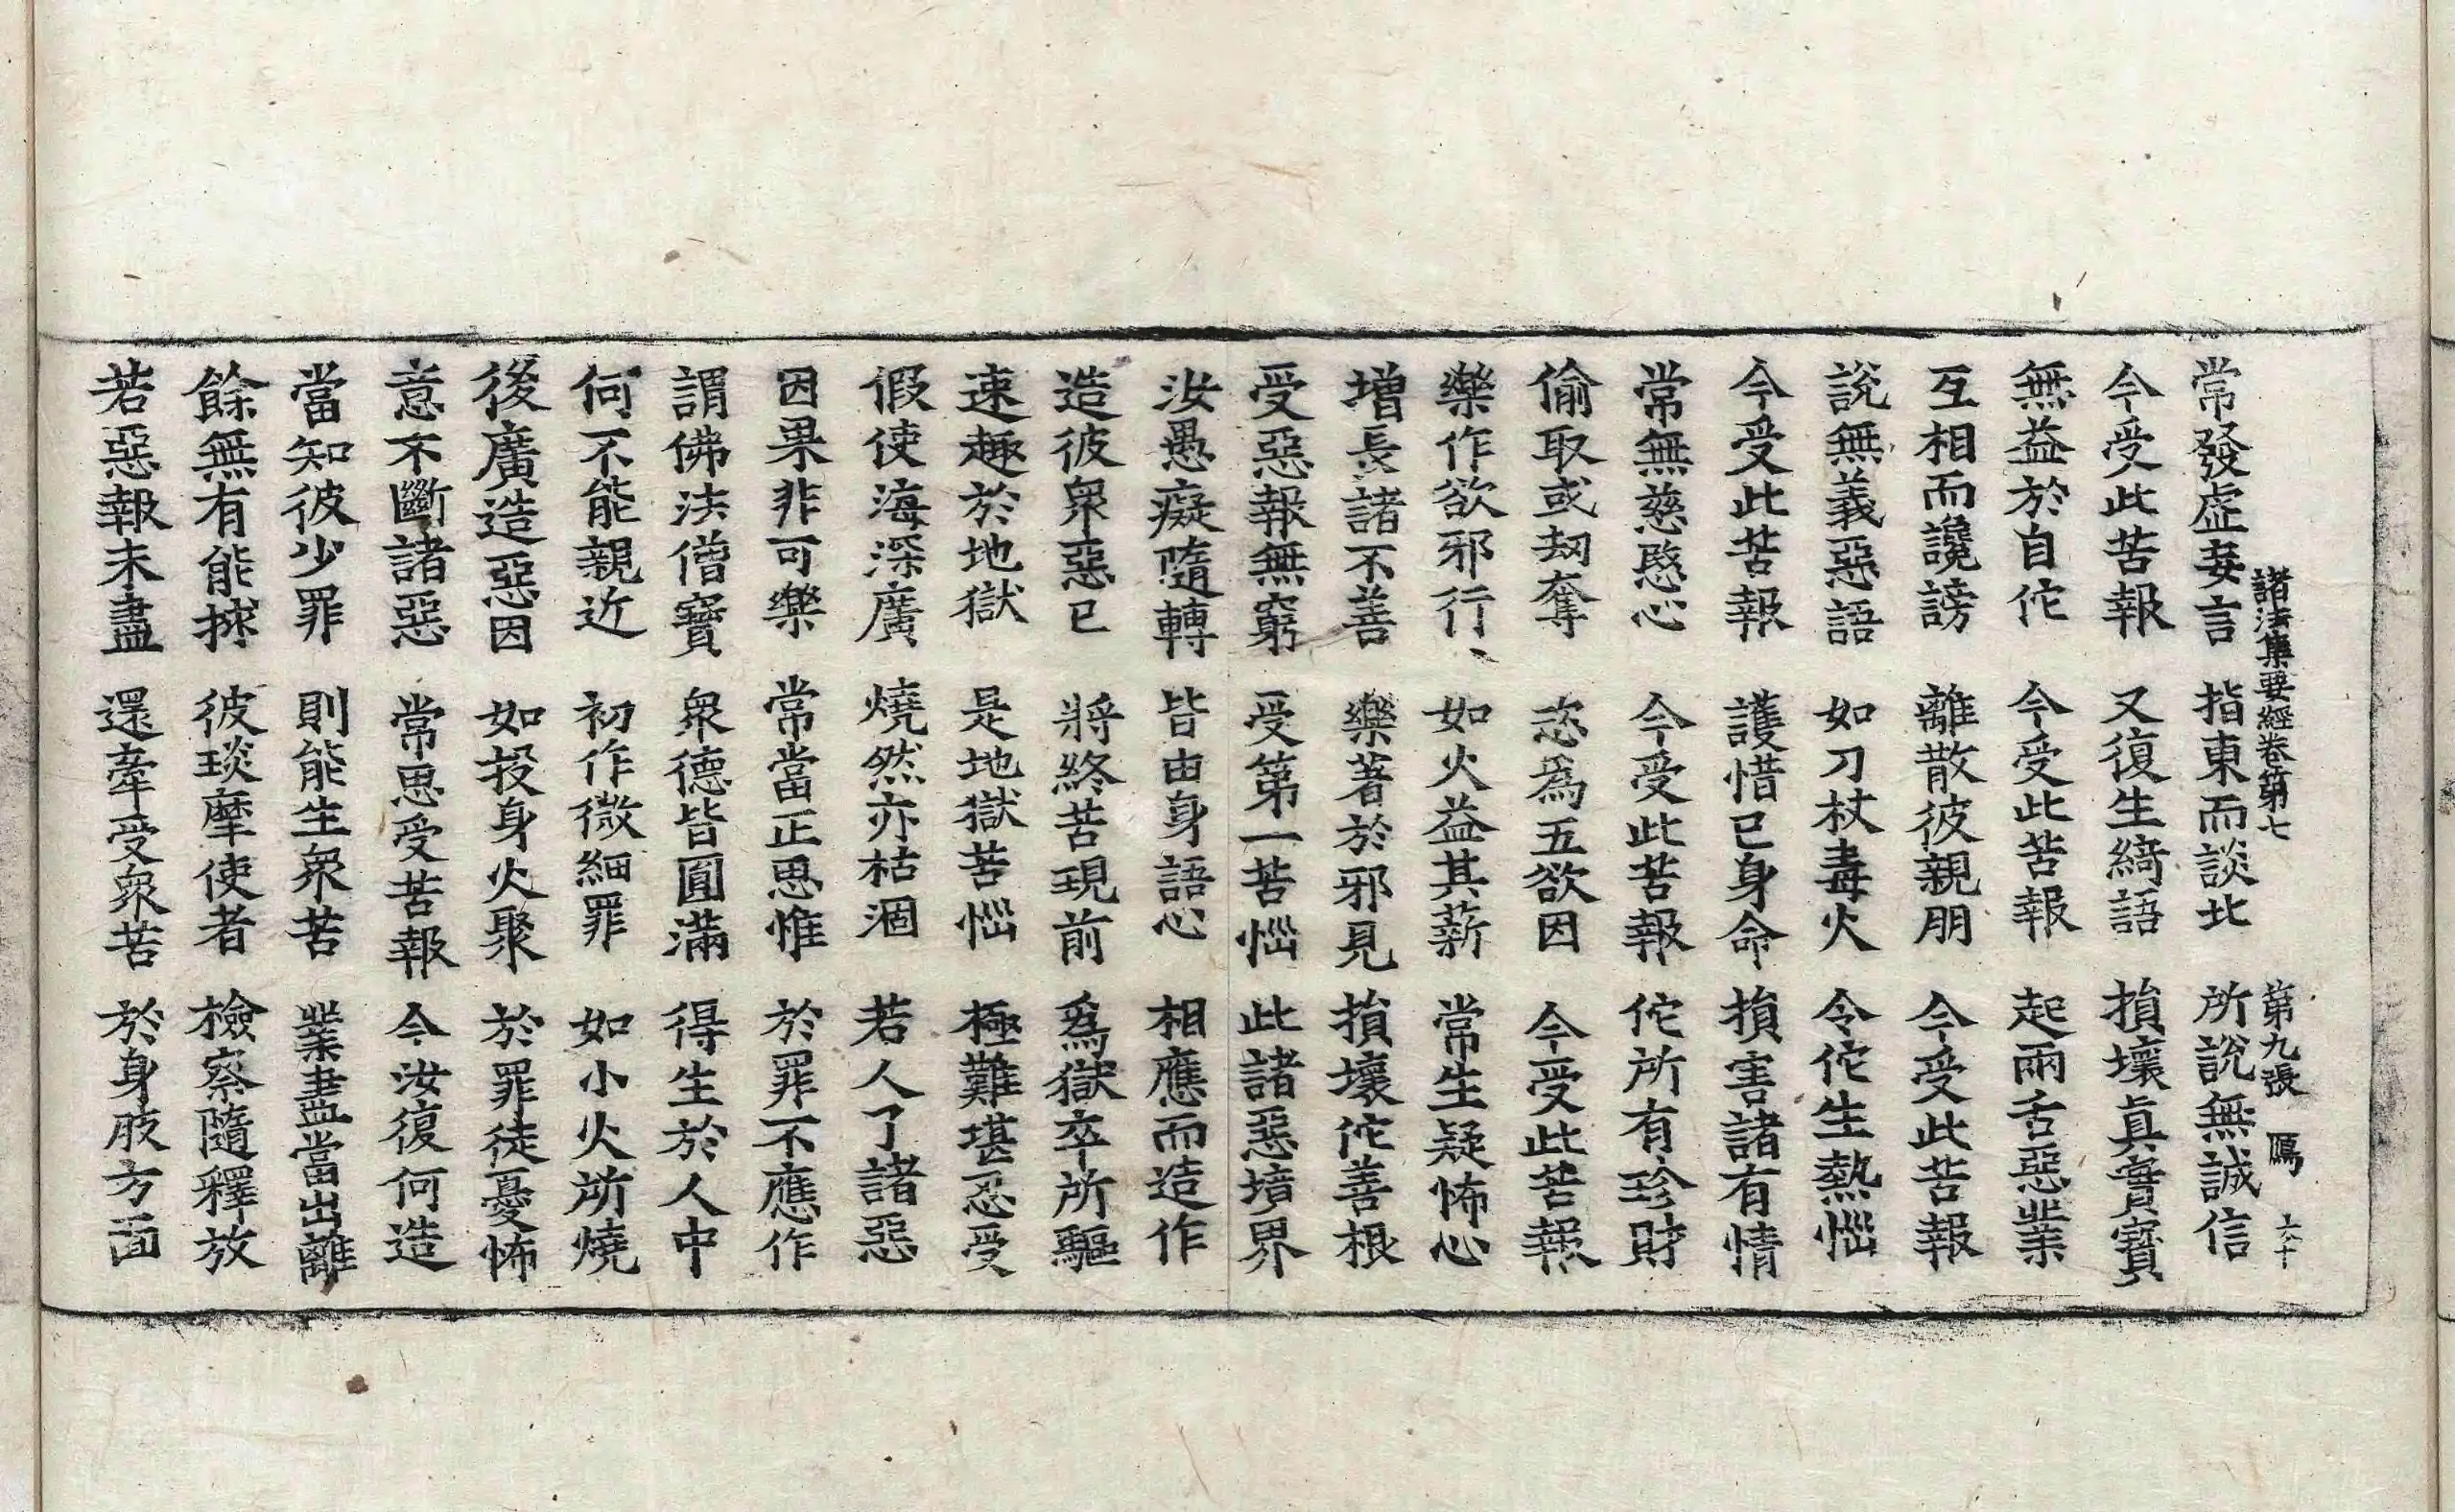 諸法集要經卷第七 第九張 鴈
常發虛妄言 指東而談北 所說無誠信
今受此苦報 又復生綺語 損壞真實寶
無益於自佗 今受此苦報 起兩舌惡業
互相而讒謗 離散彼親朋 今受此苦報
說無義惡語 如刀杖毒火 令佗生熱惱
今受此苦報 護惜已身命 損害諸有情
常無慈愍心 今受此苦報 佗所有珍財
偷取或刼奪 恣為五欲因 今受此苦報
樂作欲邪行 如火益其薪 常生疑怖心
增長諸不善 樂著於邪見 損壞佗善根
受惡報無窮 受第一苦惱 此諸惡境界
汝愚癡隨轉 皆由身語心 相應而造作
造彼衆惡已 將終苦現前 爲獄卒所驅
速趣於地獄 是地獄苦惱 極難堪忍受
假使海深廣 燒然亦枯涸 若人了諸惡
因果非可樂 常當正思惟 於罪不應作
謂佛法僧寶 衆德皆圓滿 得生於人中
何不能親近 初作微細罪 如小火所燒
後廣造惡因 如投身火聚 於罪徒憂怖
意不斷諸惡 常思受苦報 今汝復何造
當知彼少罪 則能生衆苦 業盡當出離
餘無有能捄 彼琰摩使者 檢察隨釋放
若惡報未盡 還牽受衆苦 於身肢方面